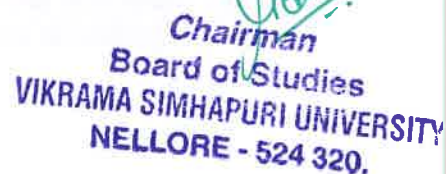 Chairman
Board of Studies
VIKRAMA SIMHAPURI UNIVERSITY
NELLORE - 524 320.